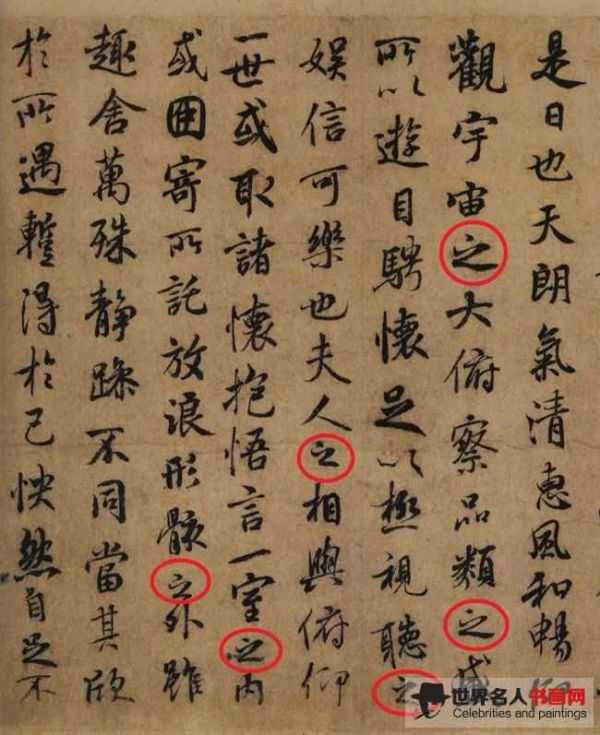 是日也天朗氣清惠風和暢仰
觀宇宙之大俯察品類之盛
所以遊目騁懷足以極視聽之
娛信可樂也夫人之相與俯仰
一世或取諸懷抱悟言一室之內
或因寄所託放浪形骸之外雖
趣舍萬殊靜躁不同當其欣
於所遇蹔得於己怏然自足不
世界名人书画网
Celebrities and paintings